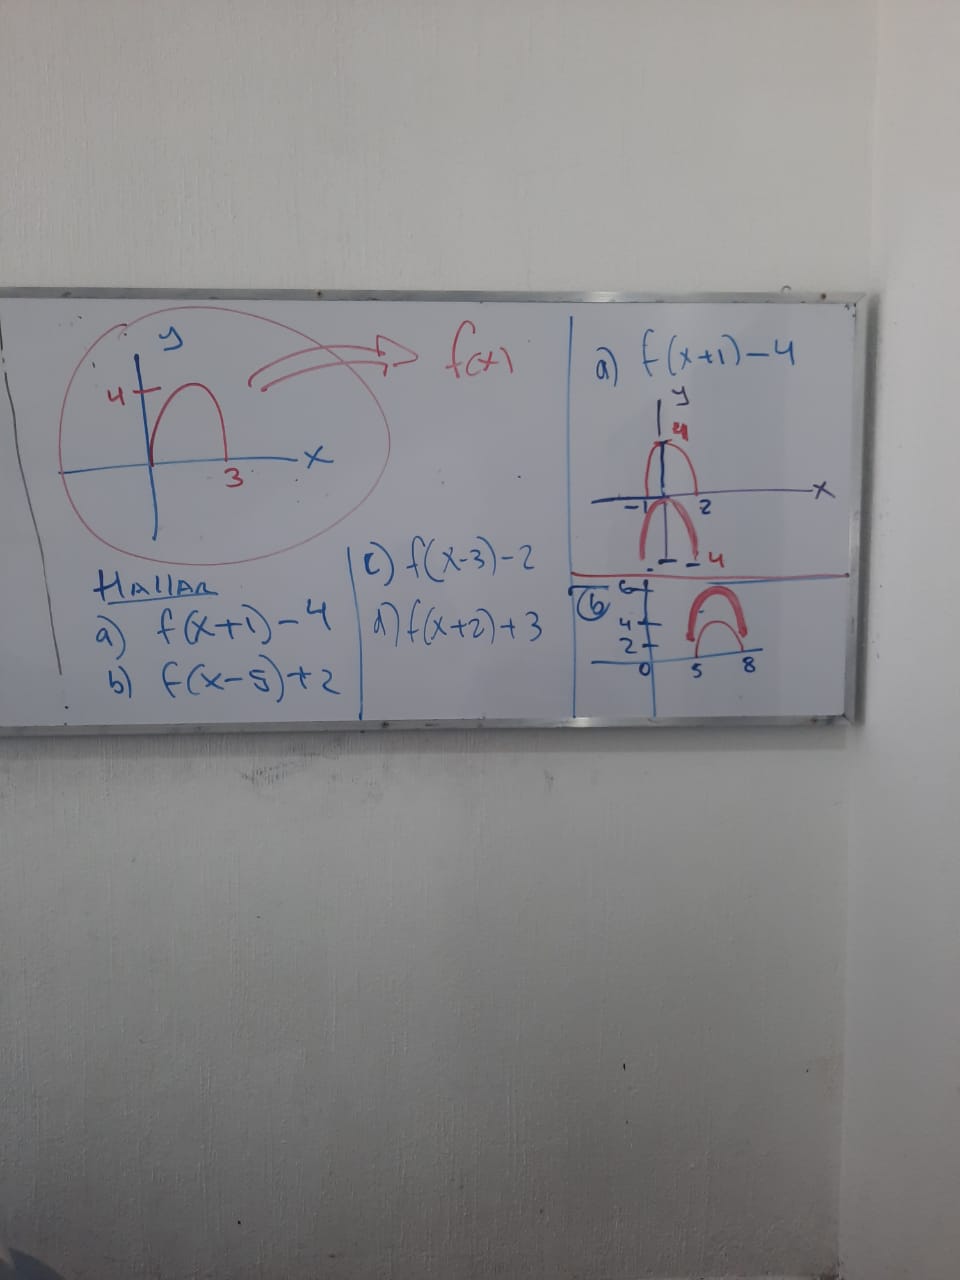 y
4
x
3
f(x)
HALLAR
a) f(x+1)-4
b) f(x-5)+2
c) f(x-3)-2
d) f(x+2)+3
a) f(x+1)-4
y
4
x
-1 2
-4
b
6
4
2
0 5 8